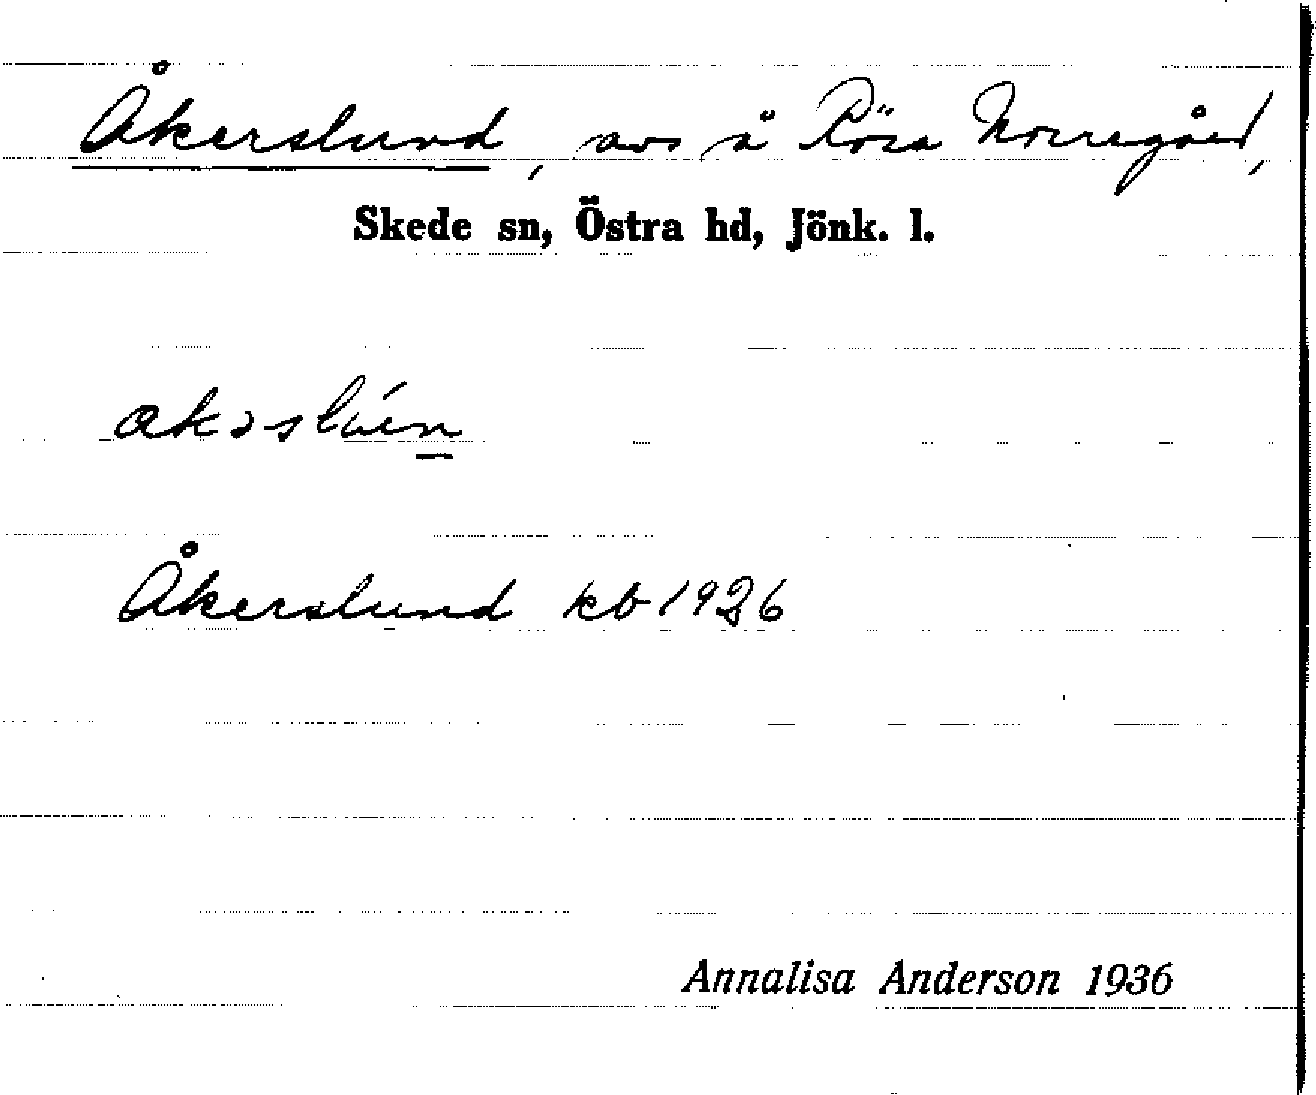 Åkerslund, avs å Röra Norregård,
Skede sn, Östra hd, Jönk. l.
Åkerslund kb 1926
Annalisa Anderson 1936